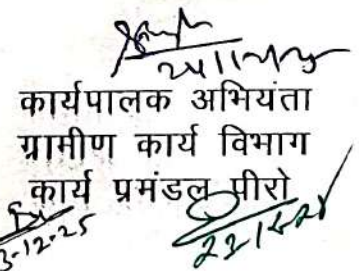 कार्यपालक अभियंता
ग्रामीण कार्य विभाग
कार्य प्रमंडल पीरो
3-12-25